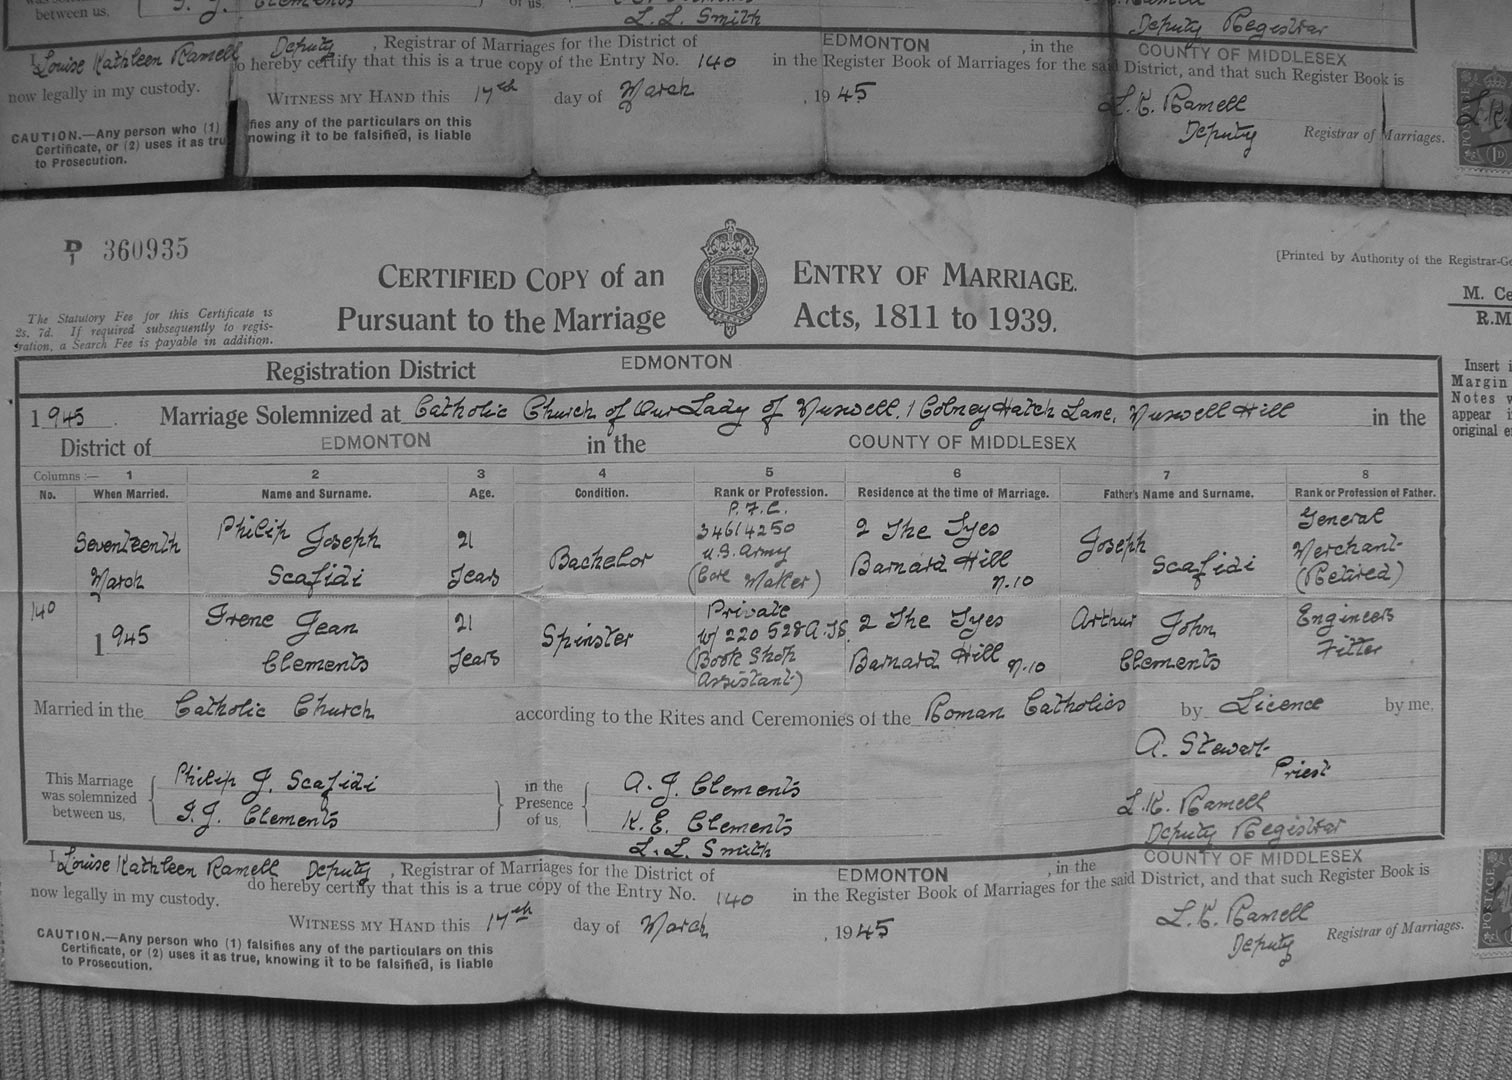 between us, I. J. Clements of us,
L. L. Smith
Deputy Registrar
I, Louise Kathleen Ramell Deputy , Registrar of Marriages for the District of EDMONTON , in the COUNTY OF MIDDLESEX
do hereby certify that this is a true copy of the Entry No. 140 in the Register Book of Marriages for the said District, and that such Register Book is
now legally in my custody.
WITNESS MY HAND this 17th day of March , 1945
L. K. Ramell
Deputy Registrar of Marriages.
CAUTION.—Any person who (1) fies any of the particulars on this
Certificate, or (2) uses it as tru nowing it to be falsified, is liable
to Prosecution.
POSTAGE
1D
P 1 360935
CERTIFIED COPY of an ENTRY OF MARRIAGE.
Pursuant to the Marriage Acts, 1811 to 1939.
[Printed by Authority of the Registrar-Ge
M. Ce
R.M
The Statutory Fee for this Certificate is
2s. 7d. If required subsequently to regis-
tration, a Search Fee is payable in addition.
Registration District EDMONTON
Insert i
Margin
Notes w
appear i
original e
1945 . Marriage Solemnized at Catholic Church of Our Lady of Muswell, 1 Colney Hatch Lane, Muswell Hill in the
District of EDMONTON in the COUNTY OF MIDDLESEX
Columns :— 1 2 3 4 5 6 7 8
No. When Married. Name and Surname. Age. Condition. Rank or Profession. Residence at the time of Marriage. Father's Name and Surname. Rank or Profession of Father.
140
Seventeenth
March
1945
Philip Joseph
Scafidi
21
Years
Bachelor
P.F.C.
34614250
U.S. Army
(Core Maker)
2 The Tyes
Barnard Hill
N.10
Joseph
Scafidi
General
Merchant
(Retired)
Irene Jean
Clements
21
Years
Spinster
Private
W/ 220 528 A.T.S.
(Book Shop
Assistant)
2 The Tyes
Barnard Hill N.10
Arthur John
Clements
Engineers
Fitter
Married in the Catholic Church according to the Rites and Ceremonies of the Roman Catholics by Licence by me,
A. Stewart
Priest
This Marriage
was solemnized
between us,
Philip J. Scafidi
I. J. Clements
in the
Presence
of us,
A. J. Clements
K. E. Clements
L. L. Smith
L. K. Ramell
Deputy Registrar
I, Louise Kathleen Ramell Deputy , Registrar of Marriages for the District of EDMONTON , in the COUNTY OF MIDDLESEX
do hereby certify that this is a true copy of the Entry No. 140 in the Register Book of Marriages for the said District, and that such Register Book is
now legally in my custody.
WITNESS MY HAND this 17th day of March , 1945
L. K. Ramell
Deputy Registrar of Marriages.
CAUTION.—Any person who (1) falsifies any of the particulars on this
Certificate, or (2) uses it as true, knowing it to be falsified, is liable
to Prosecution.
POSTAGE